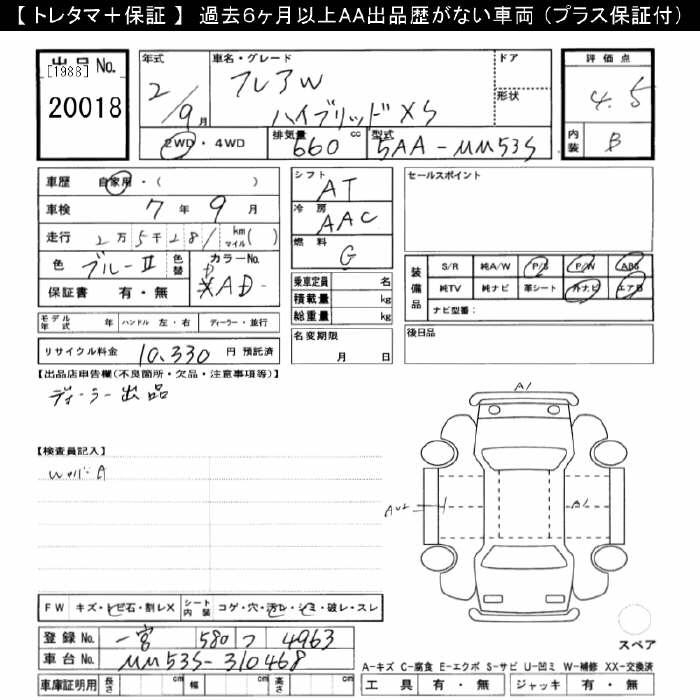 【 トレタマ＋保証 】 過去6ヶ月以上AA出品歴がない車両 （プラス保証付）
出品No.
[1988]
20018
年式
2/9月
車名・グレード
フレアW
ハイブリッドXS
ドア
形状
評価点
4.5
内装
B
2WD・4WD
排気量
660 cc
型式
5AA-MM53S
車歴 自家用・( )
車検 7年9月
走行 2万5千281 km マイル( )
色 ブルーⅡ 色替 カラーNo.
保証書 有・無
シフト AT
冷房 AAC
燃料 G
乗車定員 名
積載量 kg
総重量 kg
セールスポイント
装備品
S/R 純A/W P/S P/W ABS
純TV 純ナビ 革シート 外ナビ エアB
ナビ型番：
モデル年式 年 ハンドル 左・右 ディーラー・並行
名変期限
月 日
後日品
リサイクル料金 10,330 円 預託済
【出品店申告欄(不良箇所・欠品・注意事項等)】
ディーラー出品
【検査員記入】
A1
A1
FW キズ・トビ石・割レX シート内装 コゲ・穴・汚レ・シミ・破レ・スレ
登録No. 一宮 580 つ 4963
車台No. MM53S-310468
車庫証明用 長さ cm 幅 cm 高さ cm
スペア
A-キズ C-腐食 E-エクボ S-サビ U-凹ミ W-補修 XX-交換済
工具 有・無 ジャッキ 有・無